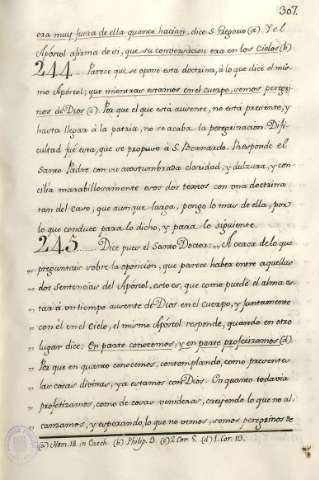 367.
era muy fuera de ella quanto hacian, dice S. Gregorio (a). Y el
Apóstol afirma de si, que su conversacion era en los Cielos (b)
244. Parece que se opone esta doctrina, à lo que dice el mis-
mo Apóstol; que mientras estamos en el cuerpo, somos peregri-
nos de Dios (c). Por que el que està ausente, no està presente, y
hasta llegar à la patria, no se acaba la peregrinacion. Difi-
cultad fué esta, que se propuso à S. Bernardo. Responde el
Santo Padre con su acostumbrada claridad, y dulzura, y con-
cilia marabillosamente esos dos textos con una doctrina
tan del caso, que aunque larga, pongo lo mas de ella, por
lo que conduce para lo dicho, y para lo siguiente.
245. Dice pues el Santo Doctor: „ Acerca de lo que
„ preguntais sobre la oposicion, que parece haber entre aquellas
„ dos Sentencias del Apóstol, esto es, que como puede el alma es-
„ tar à un tiempo ausente de Dios en el cuerpo, y juntamente
„ con el en el Cielo, el mismo Apóstol responde, quando en otro
„ lugar dice: En parte conocemos, y en parte profetizamos (d).
„ Por que en quanto conocemos, contemplando, como presentes
„ las cosas divinas, ya estamos con Dios. En quanto todavia
„ profetizamos, como de cosas venideras, creyendo lo que no al-
„ canzamos, y esperando, lo que no vemos, somos peregrinos de
(a) Hom. 18. in Ezech. (b) Philip. 3. (c) 2. Cor. 5. (d) 1. Cor. 13.